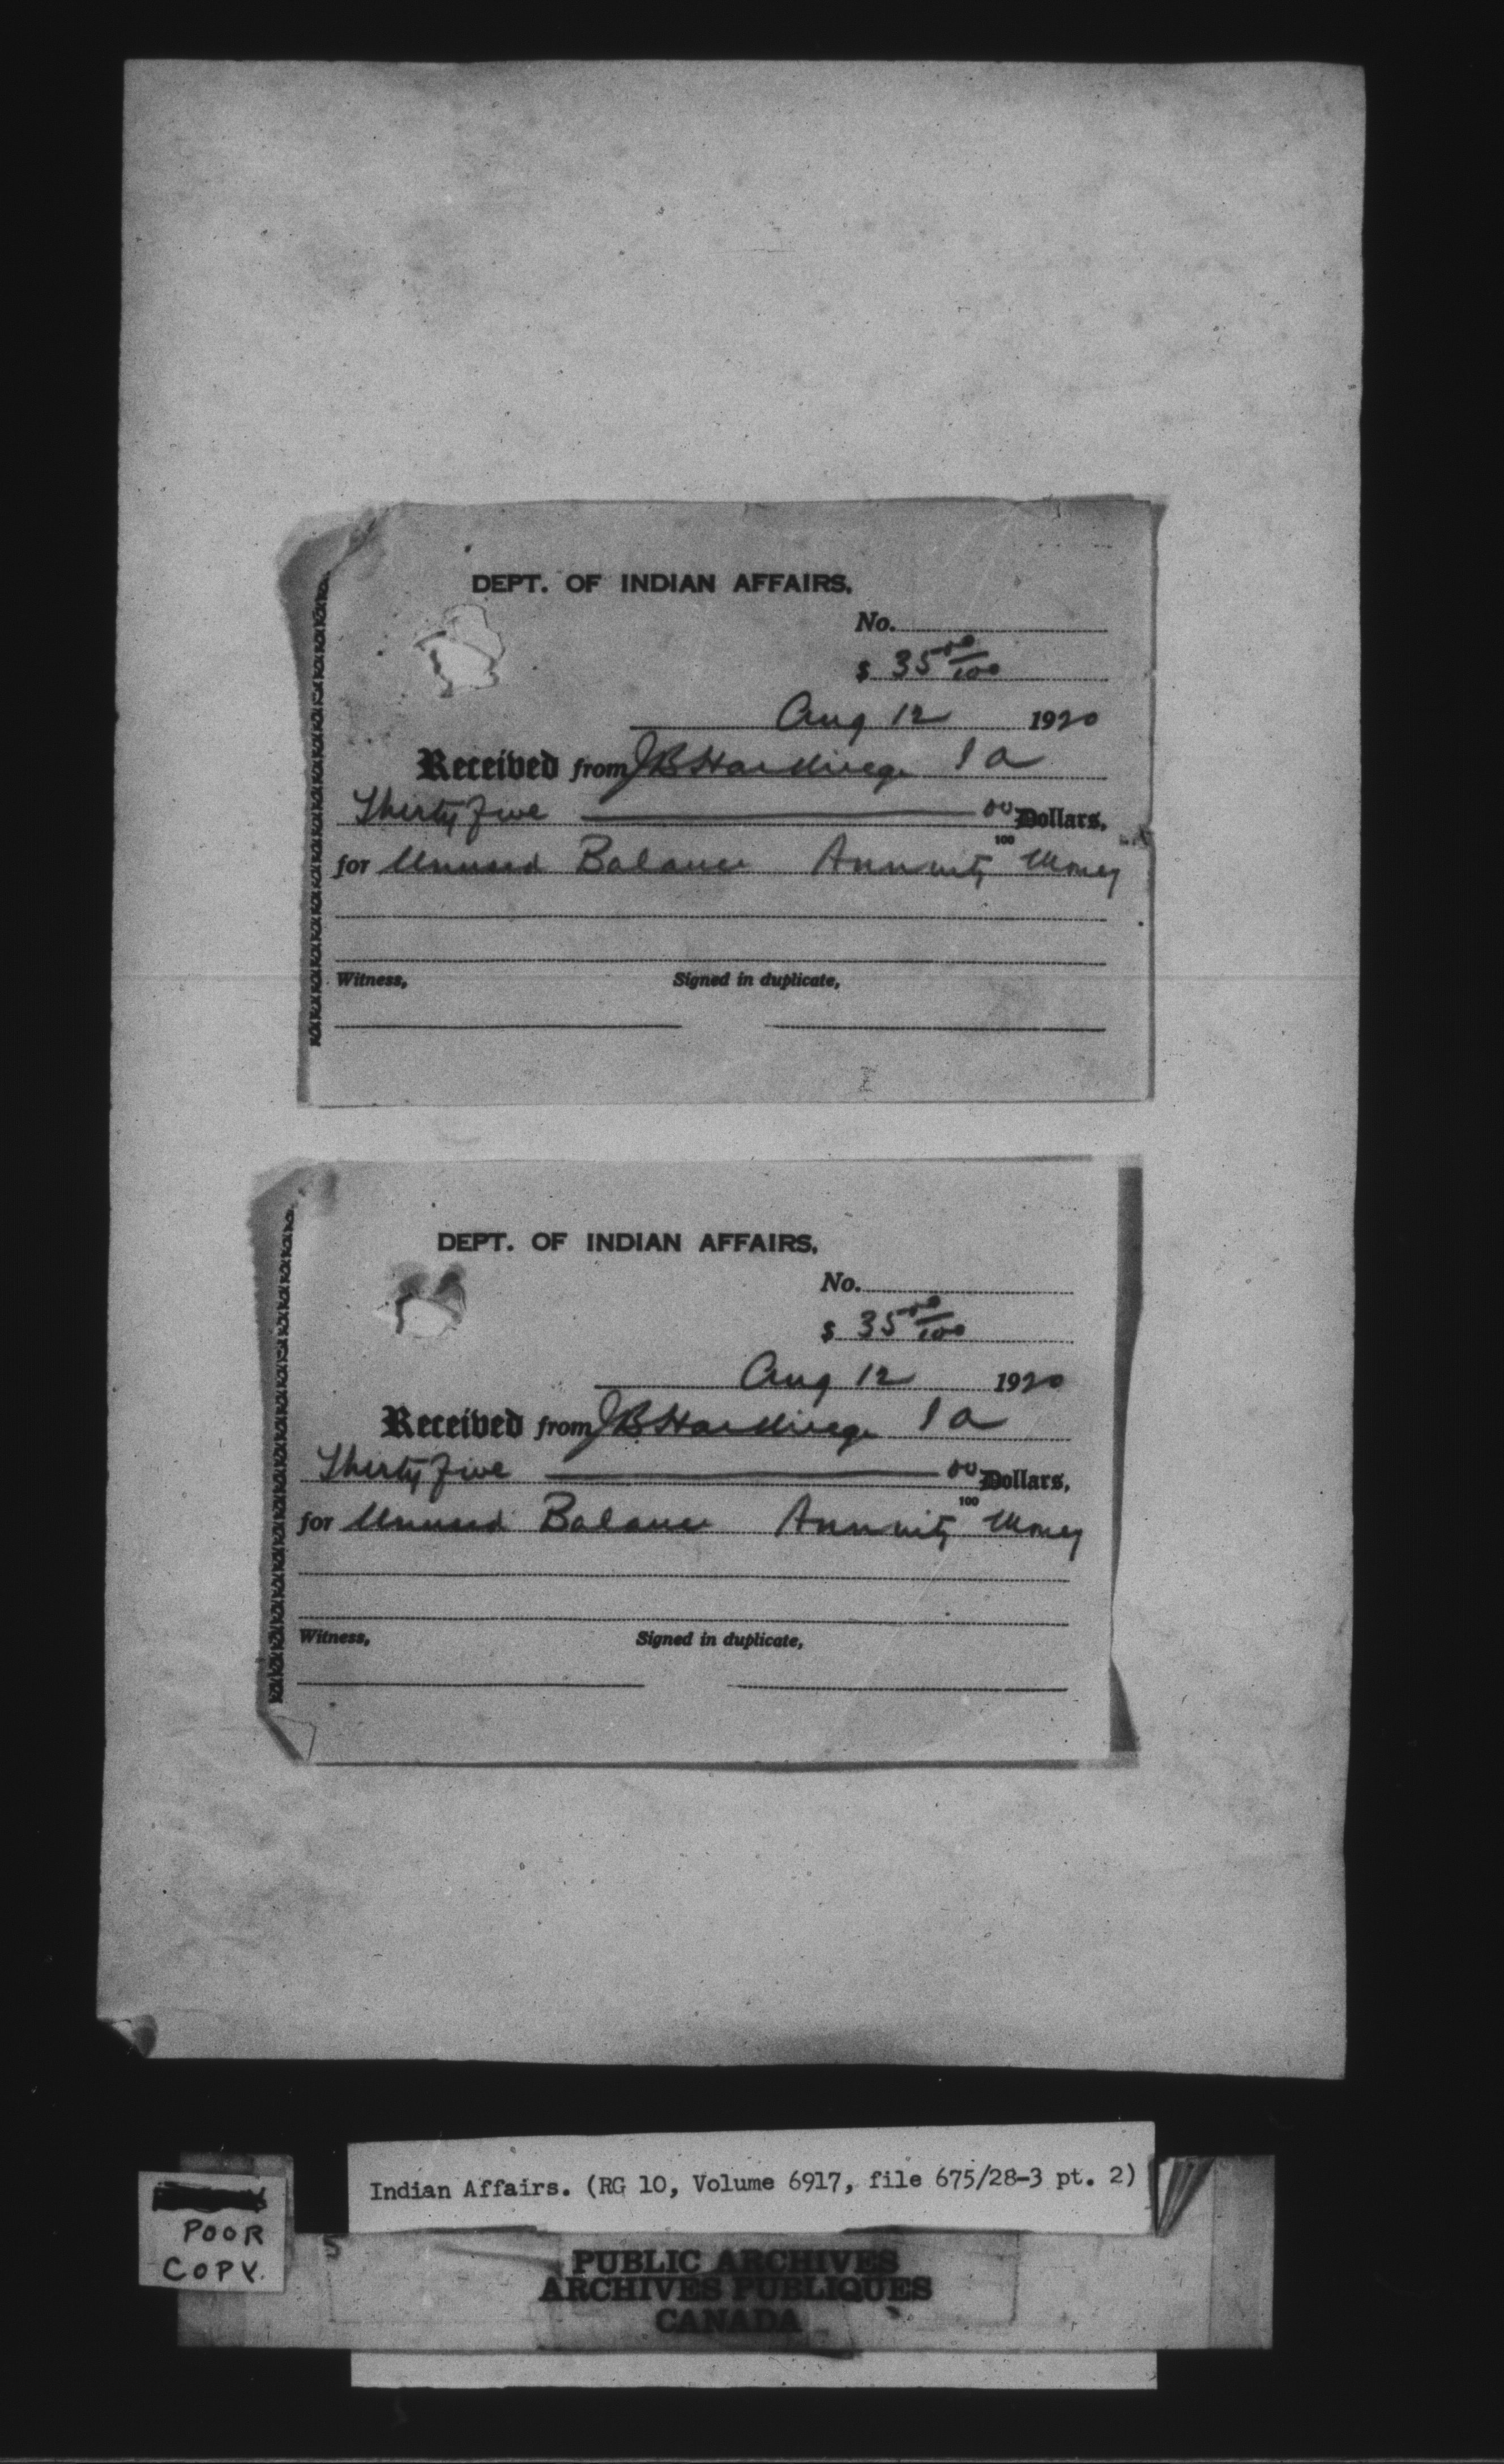 DEPT. OF INDIAN AFFAIRS,
No.
$ 35 00/100
Aug 12 1920
Received from J B Hardinge I a
Thirty five 00/100 Dollars,
for Unused Balance Annuity Money
Witness, Signed in duplicate,
DEPT. OF INDIAN AFFAIRS,
No.
$ 35 00/100
Aug 12 1920
Received from J B Hardinge I a
Thirty five 00/100 Dollars,
for Unused Balance Annuity Money
Witness, Signed in duplicate,
Indian Affairs. (RG 10, Volume 6917, file 675/28-3 pt. 2)
POOR
COPY.
PUBLIC ARCHIVES
ARCHIVES PUBLIQUES
CANADA